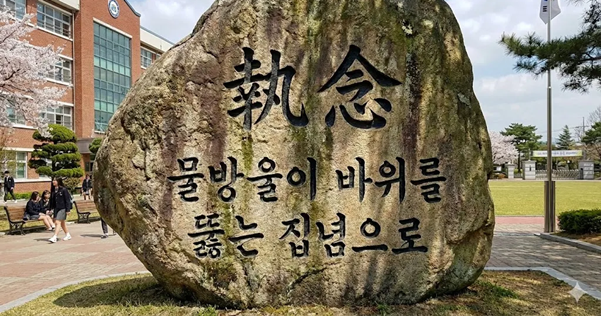 執念
물방울이 바위를
뚫는 집념으로